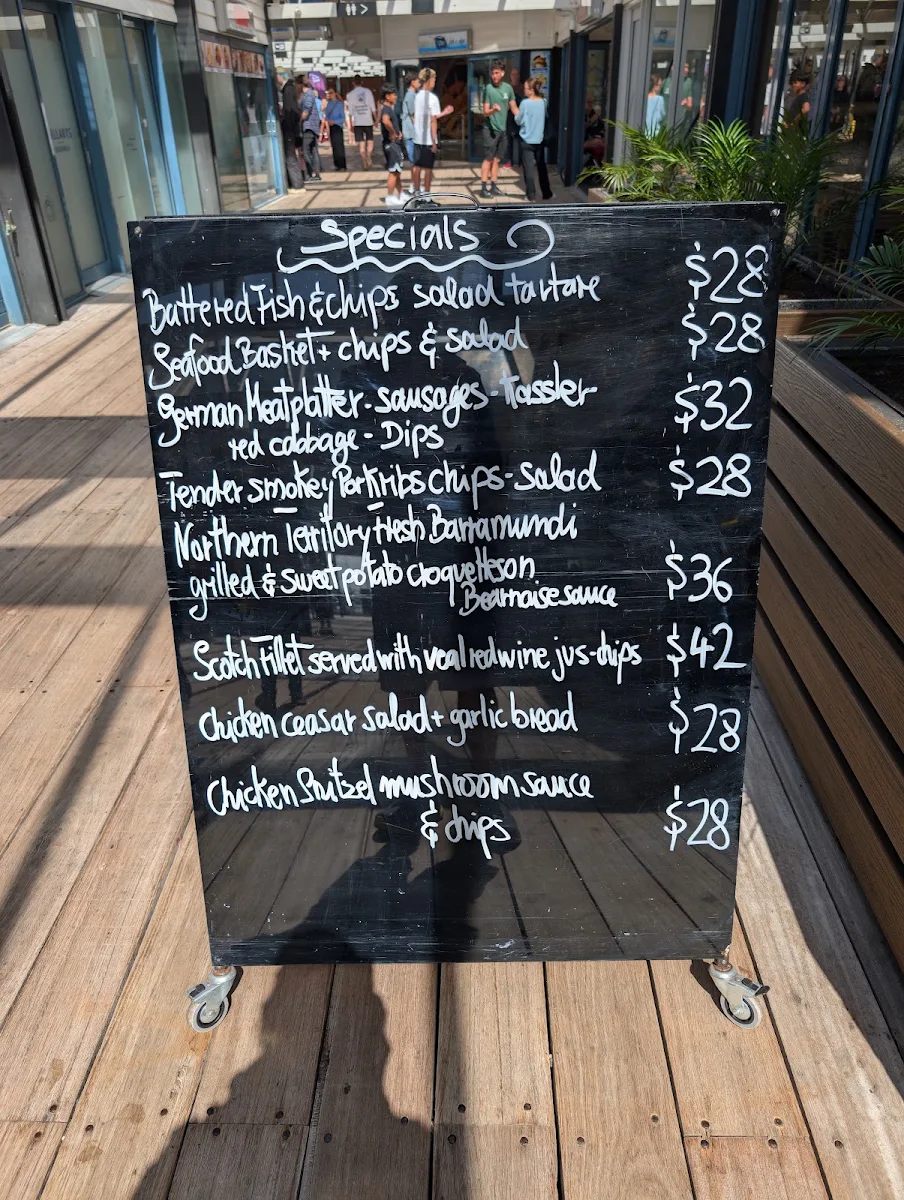 Specials
Battered Fish & chips salad tartare $28
Seafood Basket + chips & salad $28
German Meatplatter - sausages - Kassler $32
red cabbage - Dips
Tender smokey Pork ribs chips - salad $28
Northern Teritory fresh Barramundi
grilled & sweet potato croquettes on $36
Bearnaise sauce
Scotch Fillet served with veal red wine jus - chips $42
Chicken ceasar salad + garlic bread $28
Chicken Snitzel mushroom sauce
& chips $28